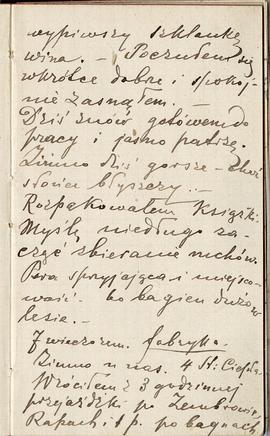 wypiwszy szklankę
wina. – Poczułem się
wkrótce dobrze i spokoj-
nie zasnąłem. –
Dziś znów gotówem do
pracy i jasno patrzę.
Zimno dziś gorsze – choć
słońce błyszczy. –
Rozpakowałem książki.
Myślę niedługo za-
cząć zbieranie mchów.
Pora sprzyjająca i miejsco-
wość – bo bagien dużo w
lesie. –
7 wieczorem. Fabryka.
Zimno u nas. 4 St: Ciepła.
Wróciłem z 3 godzinnej
przejażdżki po
i t p. po bagnach